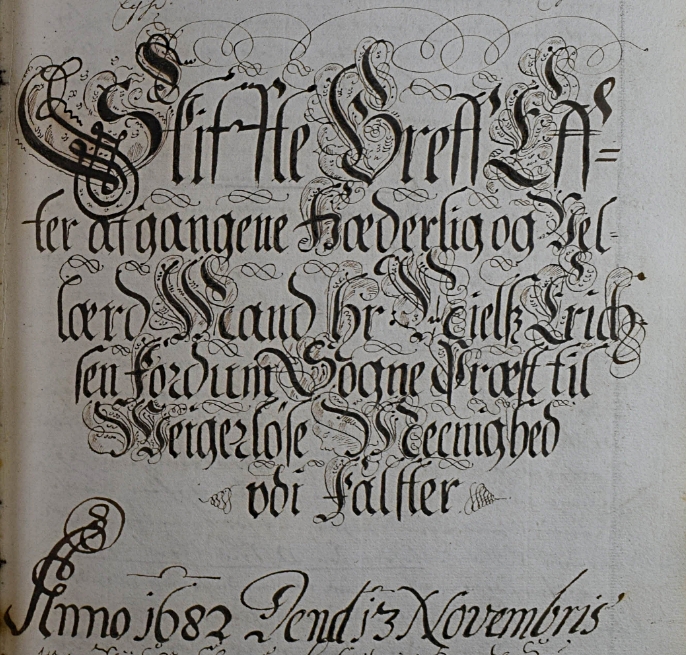 Skiffte Breff Eff=
ter afgangene Hæderlig og Vel-
lærd Mand Hr. Nielß Erich
sen fordum Sogne Præst til
Weigerlöse Meenighed
udi Falster
Anno 1682 Dend 13 Novembris